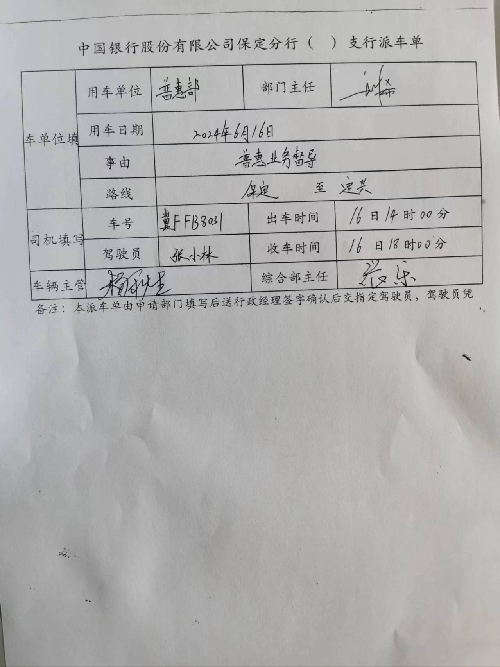 中国银行股份有限公司保定分行（ ）支行派车单
车单位填 用车单位 普惠部 部门主任
用车日期 2024年6月16日
事由 普惠业务督导
路线 保定 至 定兴
司机填写 车号 冀FFB8031 出车时间 16日14时00分
驾驶员 张小林 收车时间 16日18时00分
车辆主管 综合部主任
备注：本派车单由申请部门填写后送行政经理签字确认后交指定驾驶员，驾驶员凭